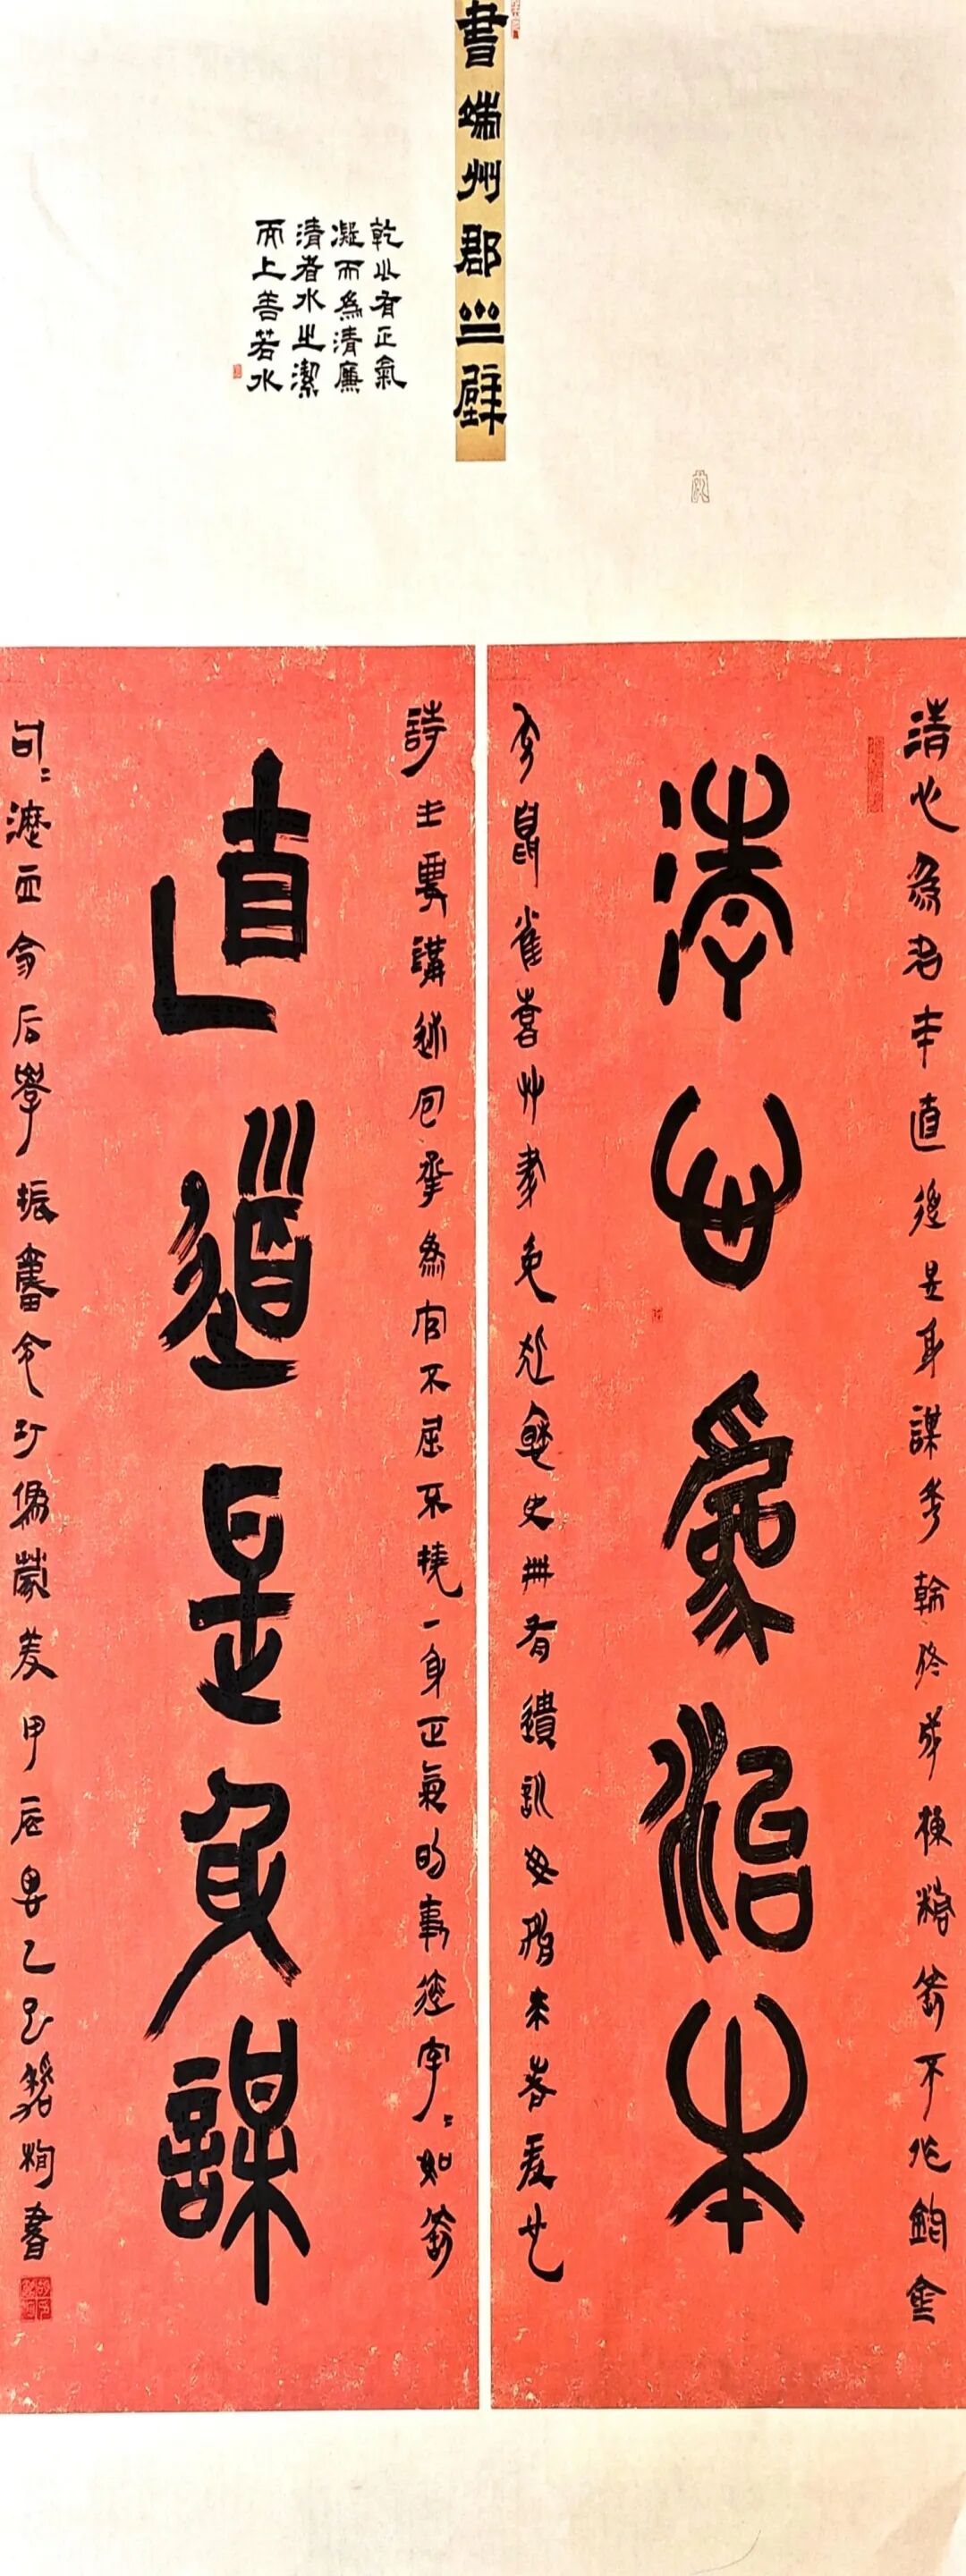 書端州郡齋壁
有正氣
凝而為清廉
清者水之潔
而上善若水
清心為治本直道是身謀秀幹終成棟精鋼不作鉤倉
充鼠雀喜艸盡兔狐愁史冊有遺訓毋貽來者羞
清心為治本
詩主要講述包拯為官不屈不撓一身正氣的事迹字〻如
直道是身謀
句〻后學振甲辰乙巳書